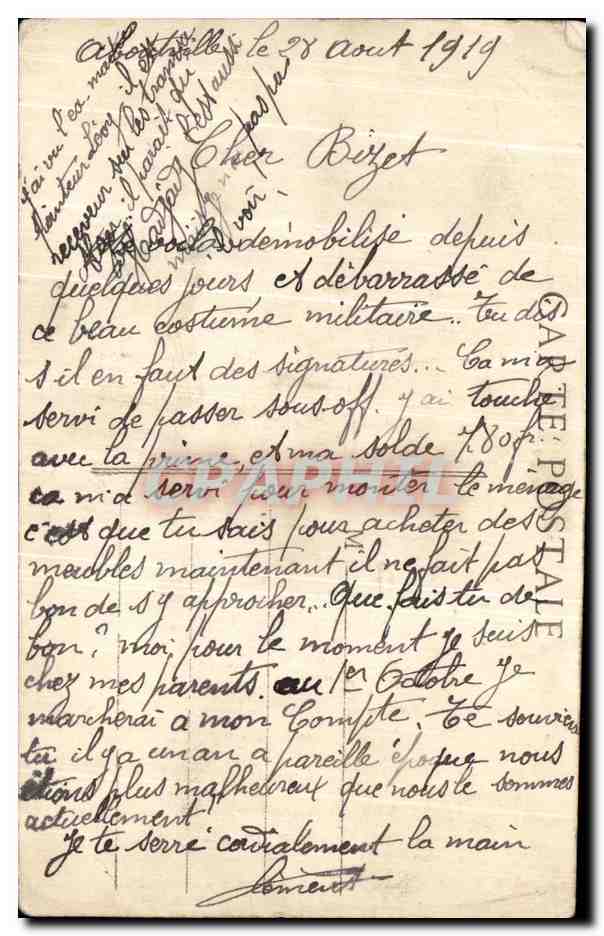 le 28 aout 1919
Cher Bizet
démobilisé depuis
quelques jours et débarrassé de
ce beau costume militaire.. Tu dis
s'il en faut des signatures... Ca m'a
servi de passer sous-off. j'ai touché
avec la prime, et ma solde 780 fr.
ca m'a servi pour monter le ménage
c'est que tu sais pour acheter des
meubles maintenant il ne fait pas
bon de s'y approcher.. Que fais tu de
bon? moi pour le moment je suis
chez mes parents. au 1er Octobre je
marcherai a mon Compte. Te souviens
tu il y a un an a pareille époque nous
étions plus malheureux que nous le sommes
actuellement
Je te serre cordialement la main
Clément
j'ai vu l'ex-major
Lévy il est
receveur sur les trams
il parait que
est aussi
pas pu
le voir.
CARTE POSTALE
CPAPHIL